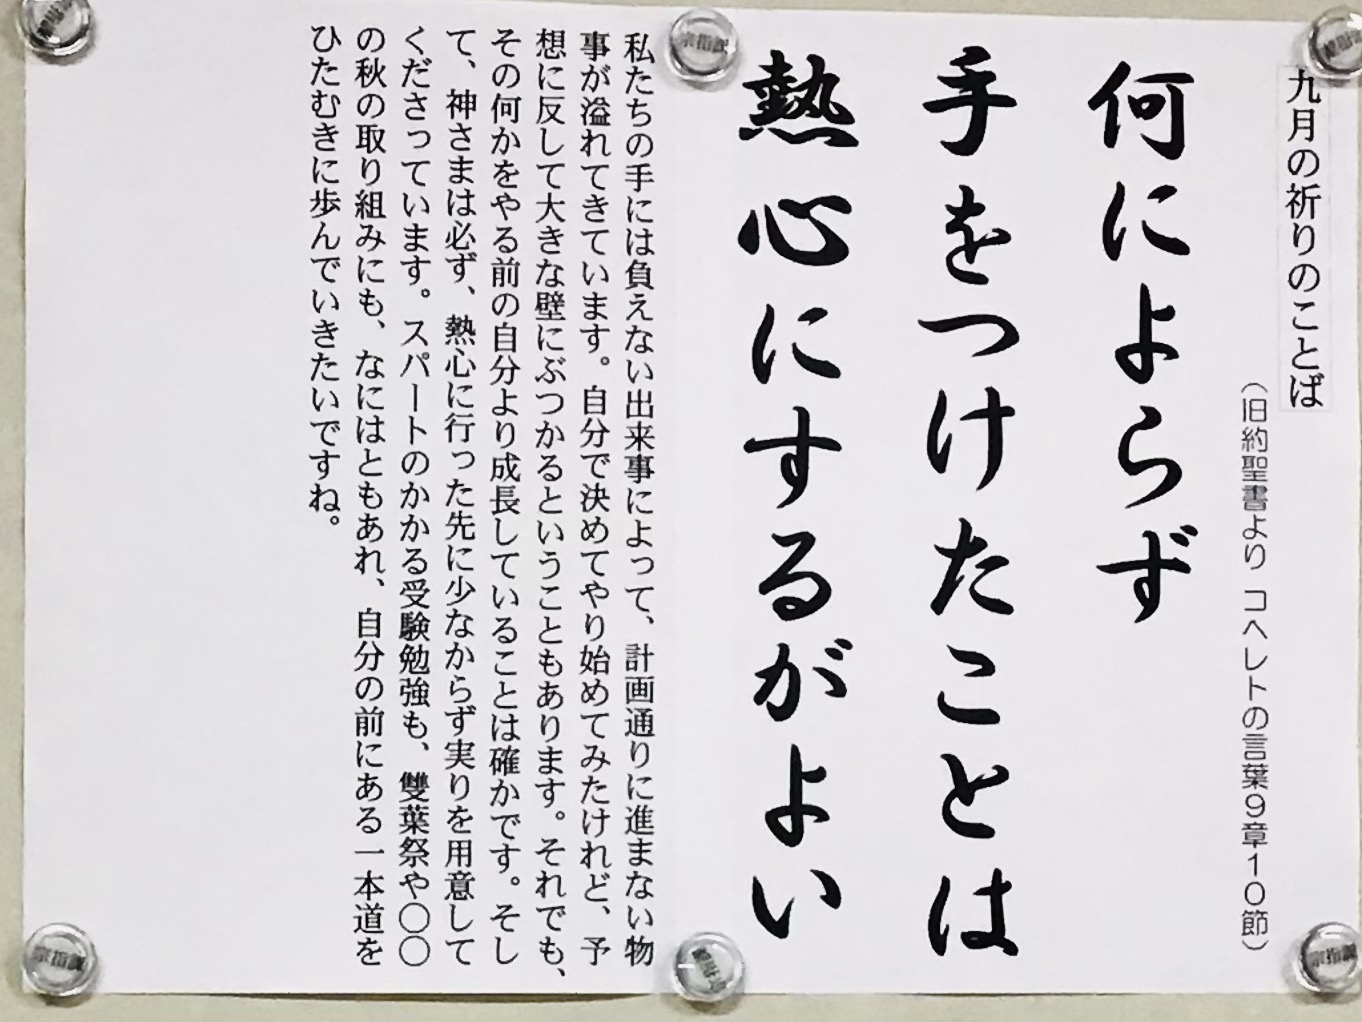 九月の祈りのことば
（旧約聖書より コヘレトの言葉９章１０節）
何によらず
手をつけたことは
熱心にするがよい
私たちの手には負えない出来事によって、計画通りに進まない物
事が溢れてきています。自分で決めてやり始めてみたけれど、予
想に反して大きな壁にぶつかるということもあります。それでも、
その何かをやる前の自分より成長していることは確かです。そし
て、神さまは必ず、熱心に行った先に少なからず実りを用意して
くださっています。スパートのかかる受験勉強も、雙葉祭や〇〇
の秋の取り組みにも、なにはともあれ、自分の前にある一本道を
ひたむきに歩んでいきたいですね。
宗指課
宗指課